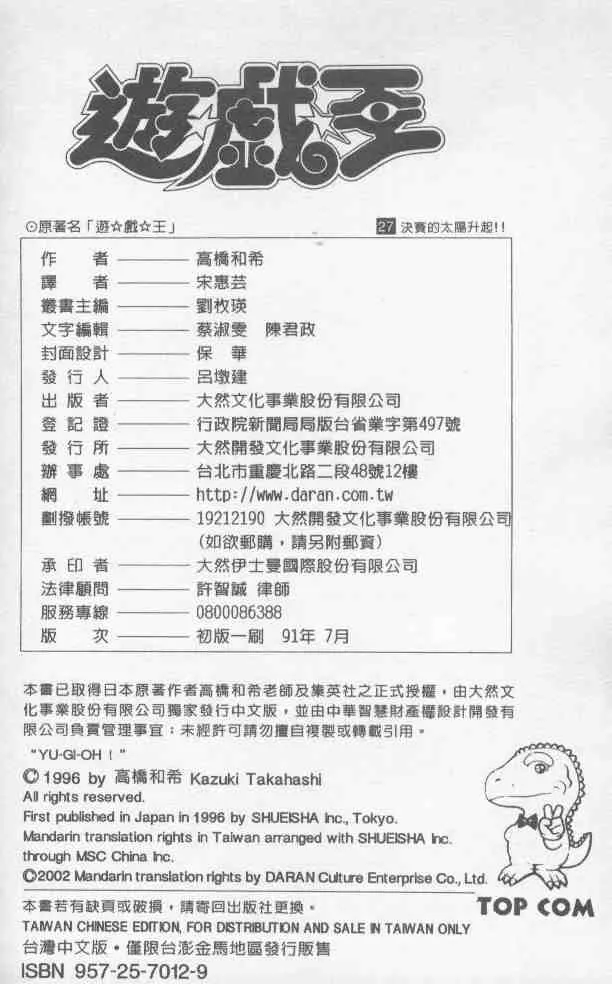 遊戲王
⊙原著名「遊☆戲☆王」 27 決賽的太陽升起!!
作者——高橋和希
譯者——宋惠芸
叢書主編——劉枚瑛
文字編輯——蔡淑雯 陳君政
封面設計——保 華
發行人——呂墩建
出版者——大然文化事業股份有限公司
登記證——行政院新聞局局版台省業字第497號
發行所——大然開發文化事業股份有限公司
辦事處——台北市重慶北路二段48號12樓
網址——http://www.daran.com.tw
劃撥帳號——19212190 大然開發文化事業股份有限公司
(如欲郵購，請另附郵資)
承印者——大然伊士曼國際股份有限公司
法律顧問——許智誠 律師
服務專線——0800086388
版次——初版一刷 91年 7月
本書已取得日本原著作者高橋和希老師及集英社之正式授權，由大然文
化事業股份有限公司獨家發行中文版，並由中華智慧財產權設計開發有
限公司負責管理事宜：未經許可請勿擅自複製或轉載引用。
"YU-GI-OH！"
© 1996 by 高橋和希 Kazuki Takahashi
All rights reserved.
First published in Japan in 1996 by SHUEISHA Inc., Tokyo.
Mandarin translation rights in Taiwan arranged with SHUEISHA Inc.
through MSC China Inc.
©2002 Mandarin translation rights by DARAN Culture Enterprise Co., Ltd.
TOP COM
本書若有缺頁或破損，請寄回出版社更換。
TAIWAN CHINESE EDITION, FOR DISTRIBUTION AND SALE IN TAIWAN ONLY
台灣中文版·僅限台澎金馬地區發行販售
ISBN 957-25-7012-9